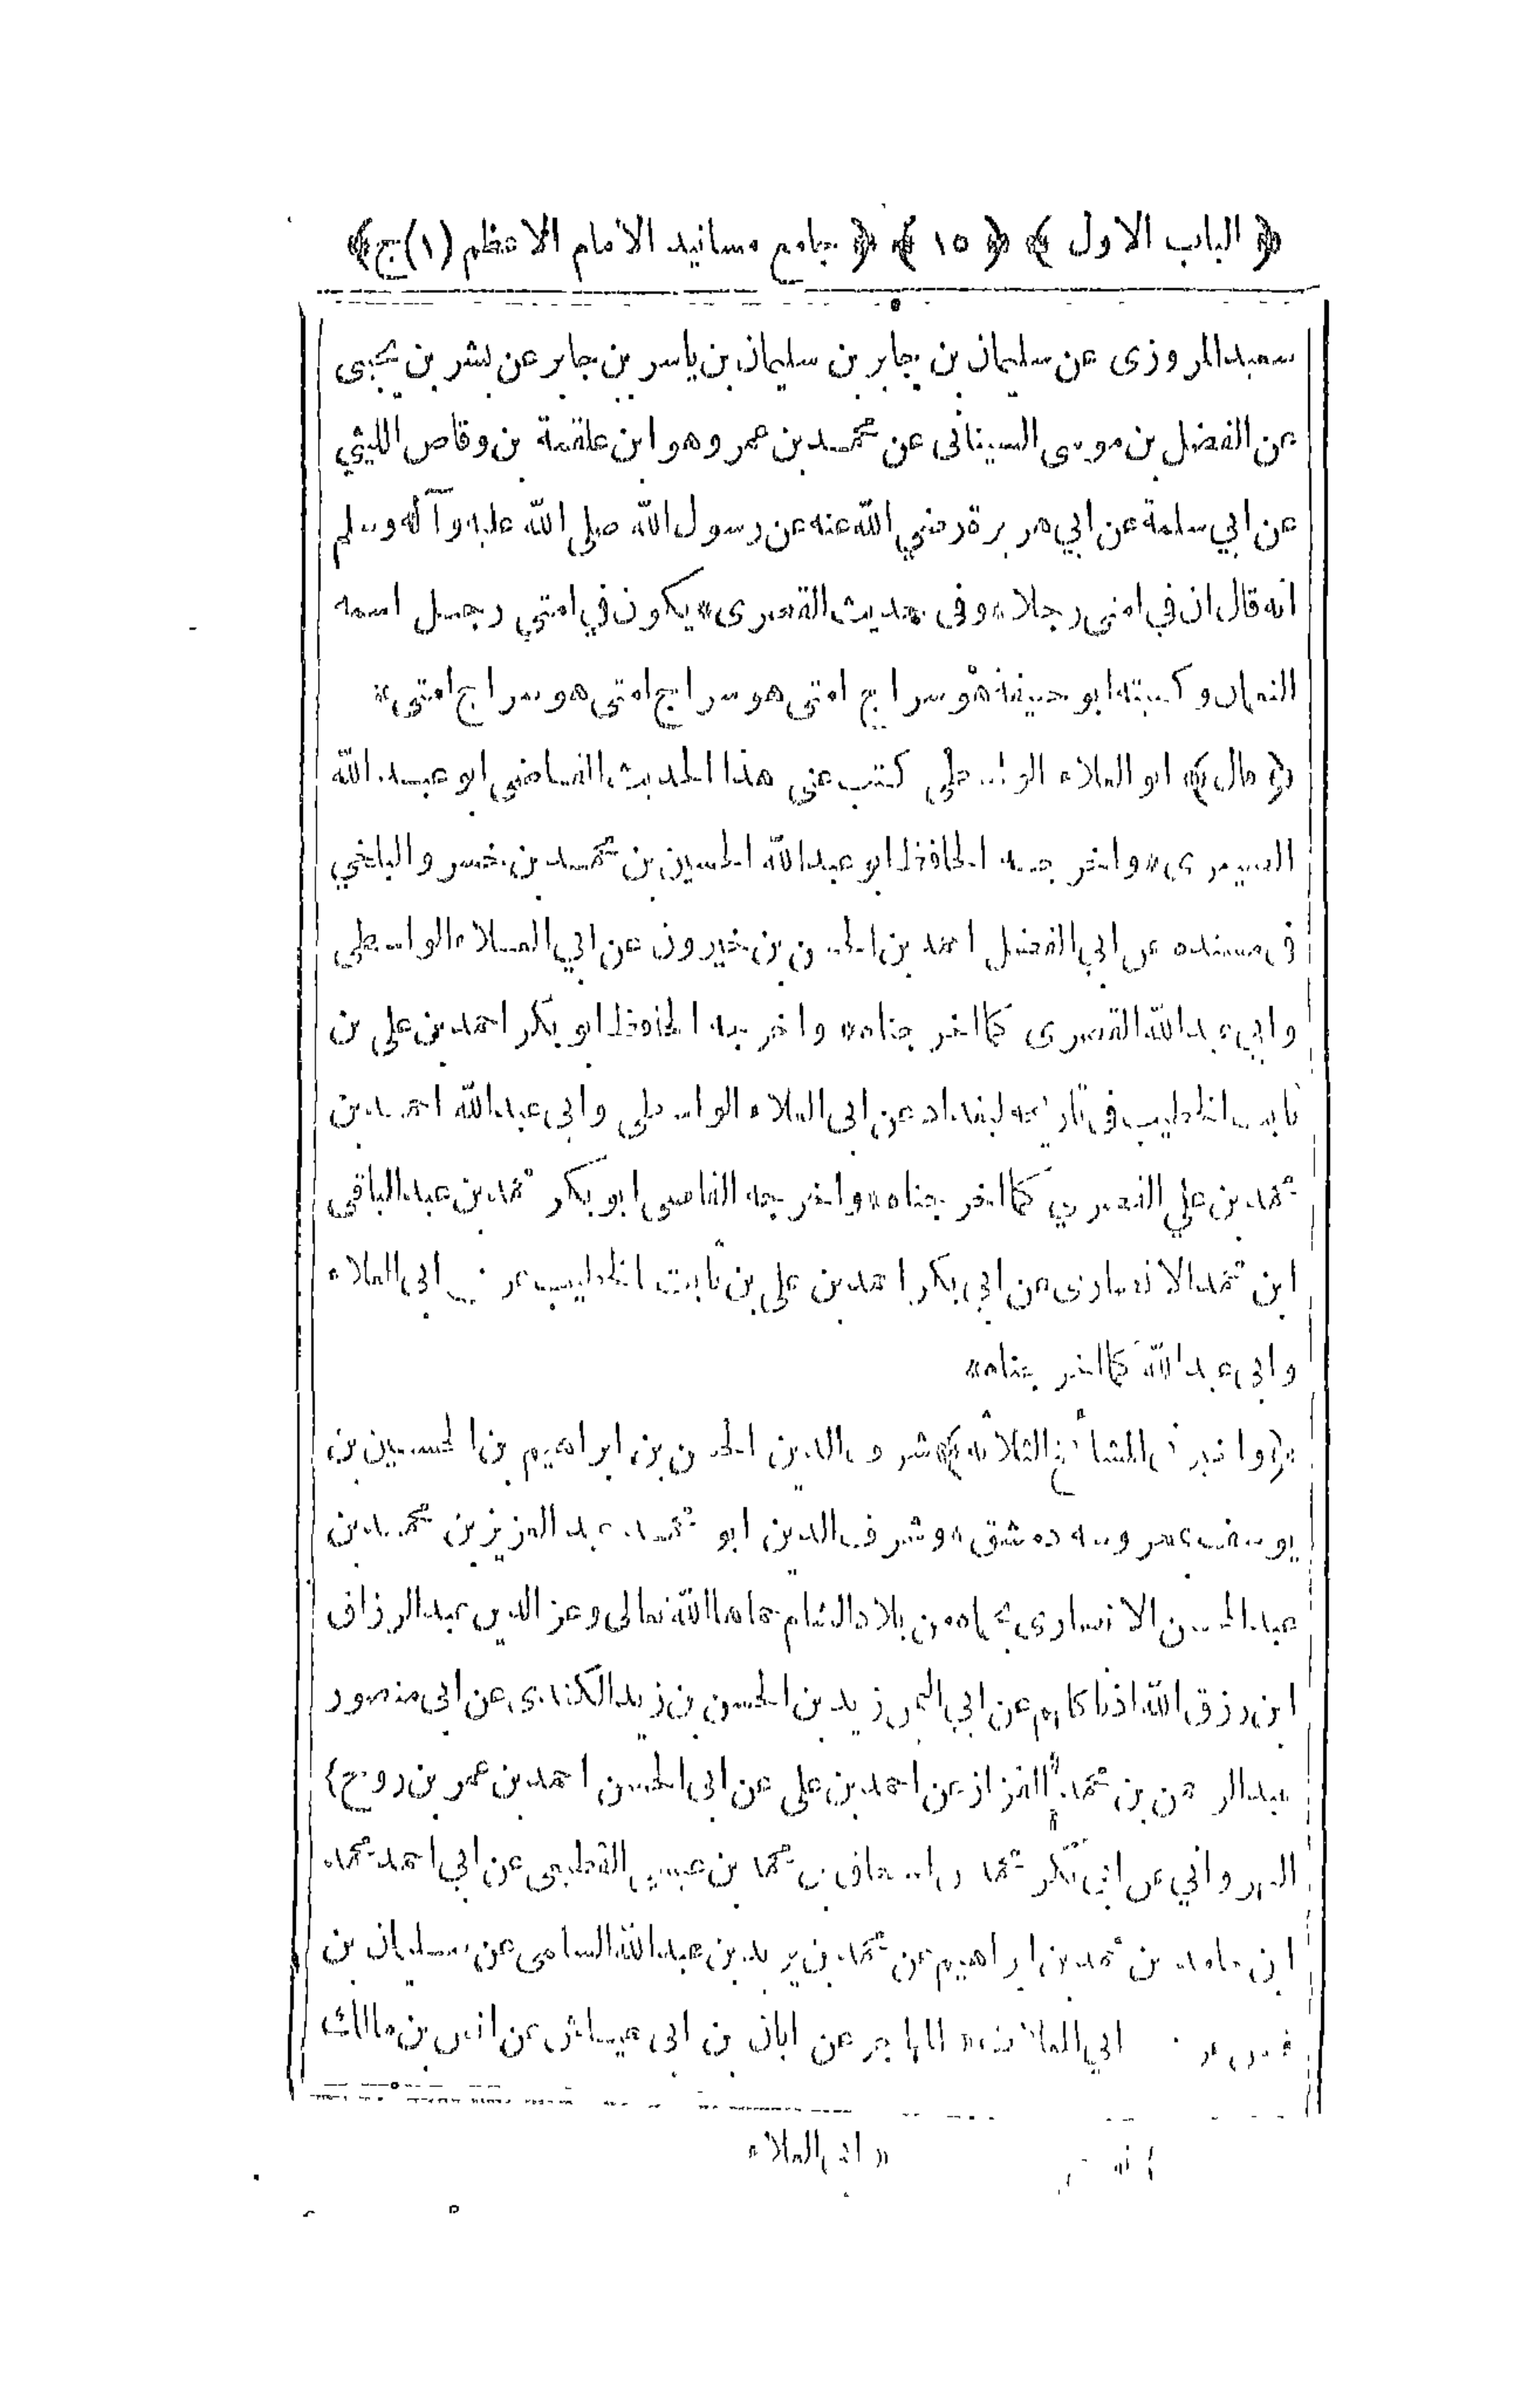 ﴿ الباب الاول ﴾ ﴿ ١٥ ﴾ ﴿ جامع مسانيد الامام الاعظم (١)ج﴾
سعيد المروزى عن سليمان بن جابر بن سليمان بن ياسر بن جابر عن بشر بن يحيى
عن الفضل بن موسى السينانى عن محمد بن عمرو هو ابن علقمة بن وقاص الليثي
عن ابي سلمة عن ابي هريرة رضي الله عنه عن رسول الله صلى الله عليه وآله وسلم
انه قال ان في امتى رجلا * وفى حديث القصرى * يكون في امتي رجل اسمه
النعمان وكنيته ابو حنيفة هو سراج امتى هو سراج امتى هو سراج امتى *
﴿ قال ﴾ ابو العلاء الواسطي كتب عني هذا الحديث القاضي ابو عبد الله
الصيمرى * واخرجه الحافظ ابو عبد الله الحسين بن محمد بن خسرو البلخي
فى مسنده عن ابي الفضل احمد بن الحسن بن خيرون عن ابي العلاء الواسطى
وابي عبد الله القصرى كما اخرجناه * واخرجه الحافظ ابو بكر احمد بن علي بن
ثابت الخطيب فى تاريخه لبغداد عن ابى العلاء الواسطى وابى عبد الله احمد بن
محمد بن علي القصري كما اخرجناه * واخرجه القاضى ابو بكر محمد بن عبد الباقى
ابن محمد الانصارى عن ابي بكر احمد بن علي بن ثابت الخطيب عن ابى العلاء
وابى عبد الله كما اخرجناه *
﴿واخبرنى المشائخ الثلاثه﴾ شرف الدين الحسن بن ابراهيم بن الحسين بن
يوسف بمحروسة دمشق * وشرف الدين ابو محمد عبد العزيز بن محمد بن
عبد المحسن الانصارى بحماه من بلاد الشام حماها الله تعالى وعز الدين عبد الرزاق
ابن رزق الله اذنا كلهم عن ابي اليمن زيد بن الحسن بن زيد الكندى عن ابى منصور
عبد الرحمن بن محمد القزاز عن احمد بن علي عن ابى الحسن احمد بن عمر بن روح)
النهرواني عن ابي بكر محمد بن اسحاق بن محمد بن عيسى القطيعى عن ابي احمد محمد
ابن حامد بن محمد بن ابراهيم عن محمد بن يزيد بن عبد الله السلمى عن سليمان بن
قيس عن ابي المعلا * المهاجر عن ابان بن ابى عياش عن انس بن مالك
* ابى العلاء